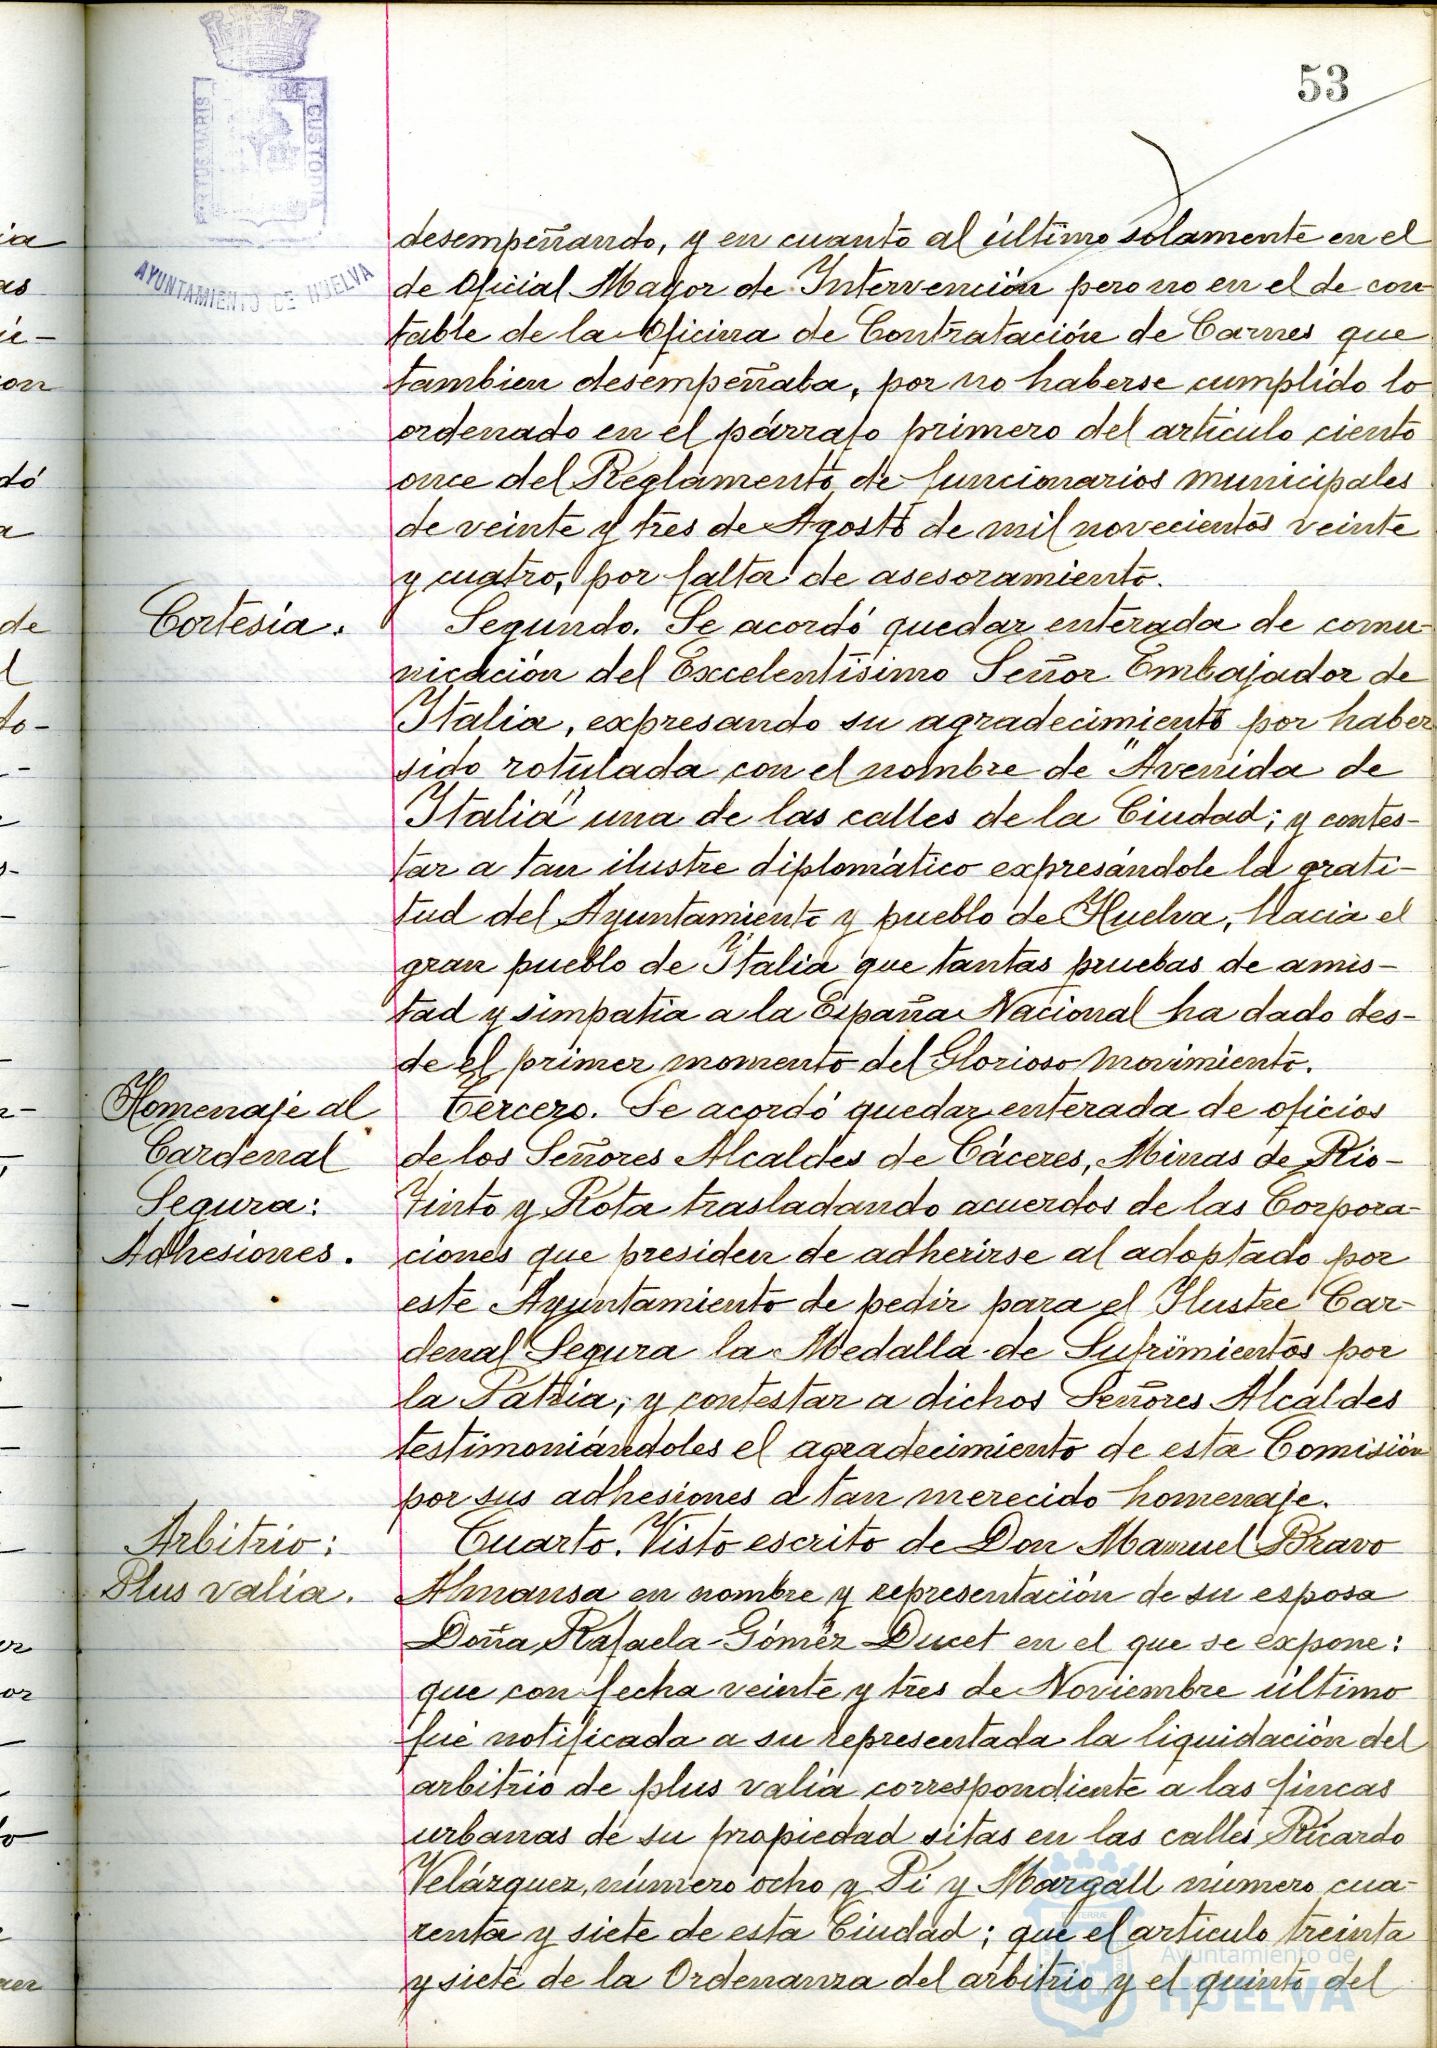 53
PORTUS MARIS CUSTODIA
AYUNTAMIENTO DE HUELVA
desempeñando, y en cuanto al último solamente en el
de Oficial Mayor de Intervención pero no en el de con
table de la Oficina de Contratación de Carnes que
tambien desempeñaba, por no haberse cumplido lo
ordenado en el párrafo primero del articulo ciento
once del Reglamento de funcionarios municipales
de veinte y tres de Agosto de mil novecientos veinte
y cuatro, por falta de asesoramiento.
Cortesía.
Segundo. Se acordó quedar enterada de comu-
nicación del Excelentísimo Señor Embajador de
Italia, expresando su agradecimiento por haber
sido rotulada con el nombre de "Avenida de
Italia" una de las calles de la Ciudad; y contes-
tar a tan ilustre diplomático expresándole la grati-
tud del Ayuntamiento y pueblo de Huelva, hacia el
gran pueblo de Italia que tantas pruebas de amis-
tad y simpatia a la España Nacional ha dado des-
de el primer momento del Glorioso Movimiento.
Homenaje al
Cardenal
Segura:
Adhesiones.
Tercero. Se acordó quedar enterada de oficios
de los Señores Alcaldes de Cáceres, Minas de Rio-
Tinto y Rota trasladando acuerdos de las Corpora-
ciones que presiden de adherirse al adoptado por
este Ayuntamiento de pedir para el Ilustre Car-
denal Segura la Medalla de Sufrimientos por
la Patria; y contestar a dichos Señores Alcaldes
testimoniándoles el agradecimiento de esta Comisión
por sus adhesiones a tan merecido homenaje.
Arbitrio:
Plus valía.
Cuarto. Visto escrito de Don Manuel Bravo
Almansa en nombre y representación de su esposa
Doña Rafaela Gómez Ducet en el que se expone:
que con fecha veinte y tres de Noviembre último
fué notificada a su representada la liquidación del
arbitrio de plus valía correspondiente a las fincas
urbanas de su propiedad sitas en las calles Ricardo
Velázquez, número ocho y Pi y Margall número cua-
renta y siete de esta Ciudad; que el articulo treinta
y siete de la Ordenanza del arbitrio y el quinto del
Ayuntamiento de
HUELVA